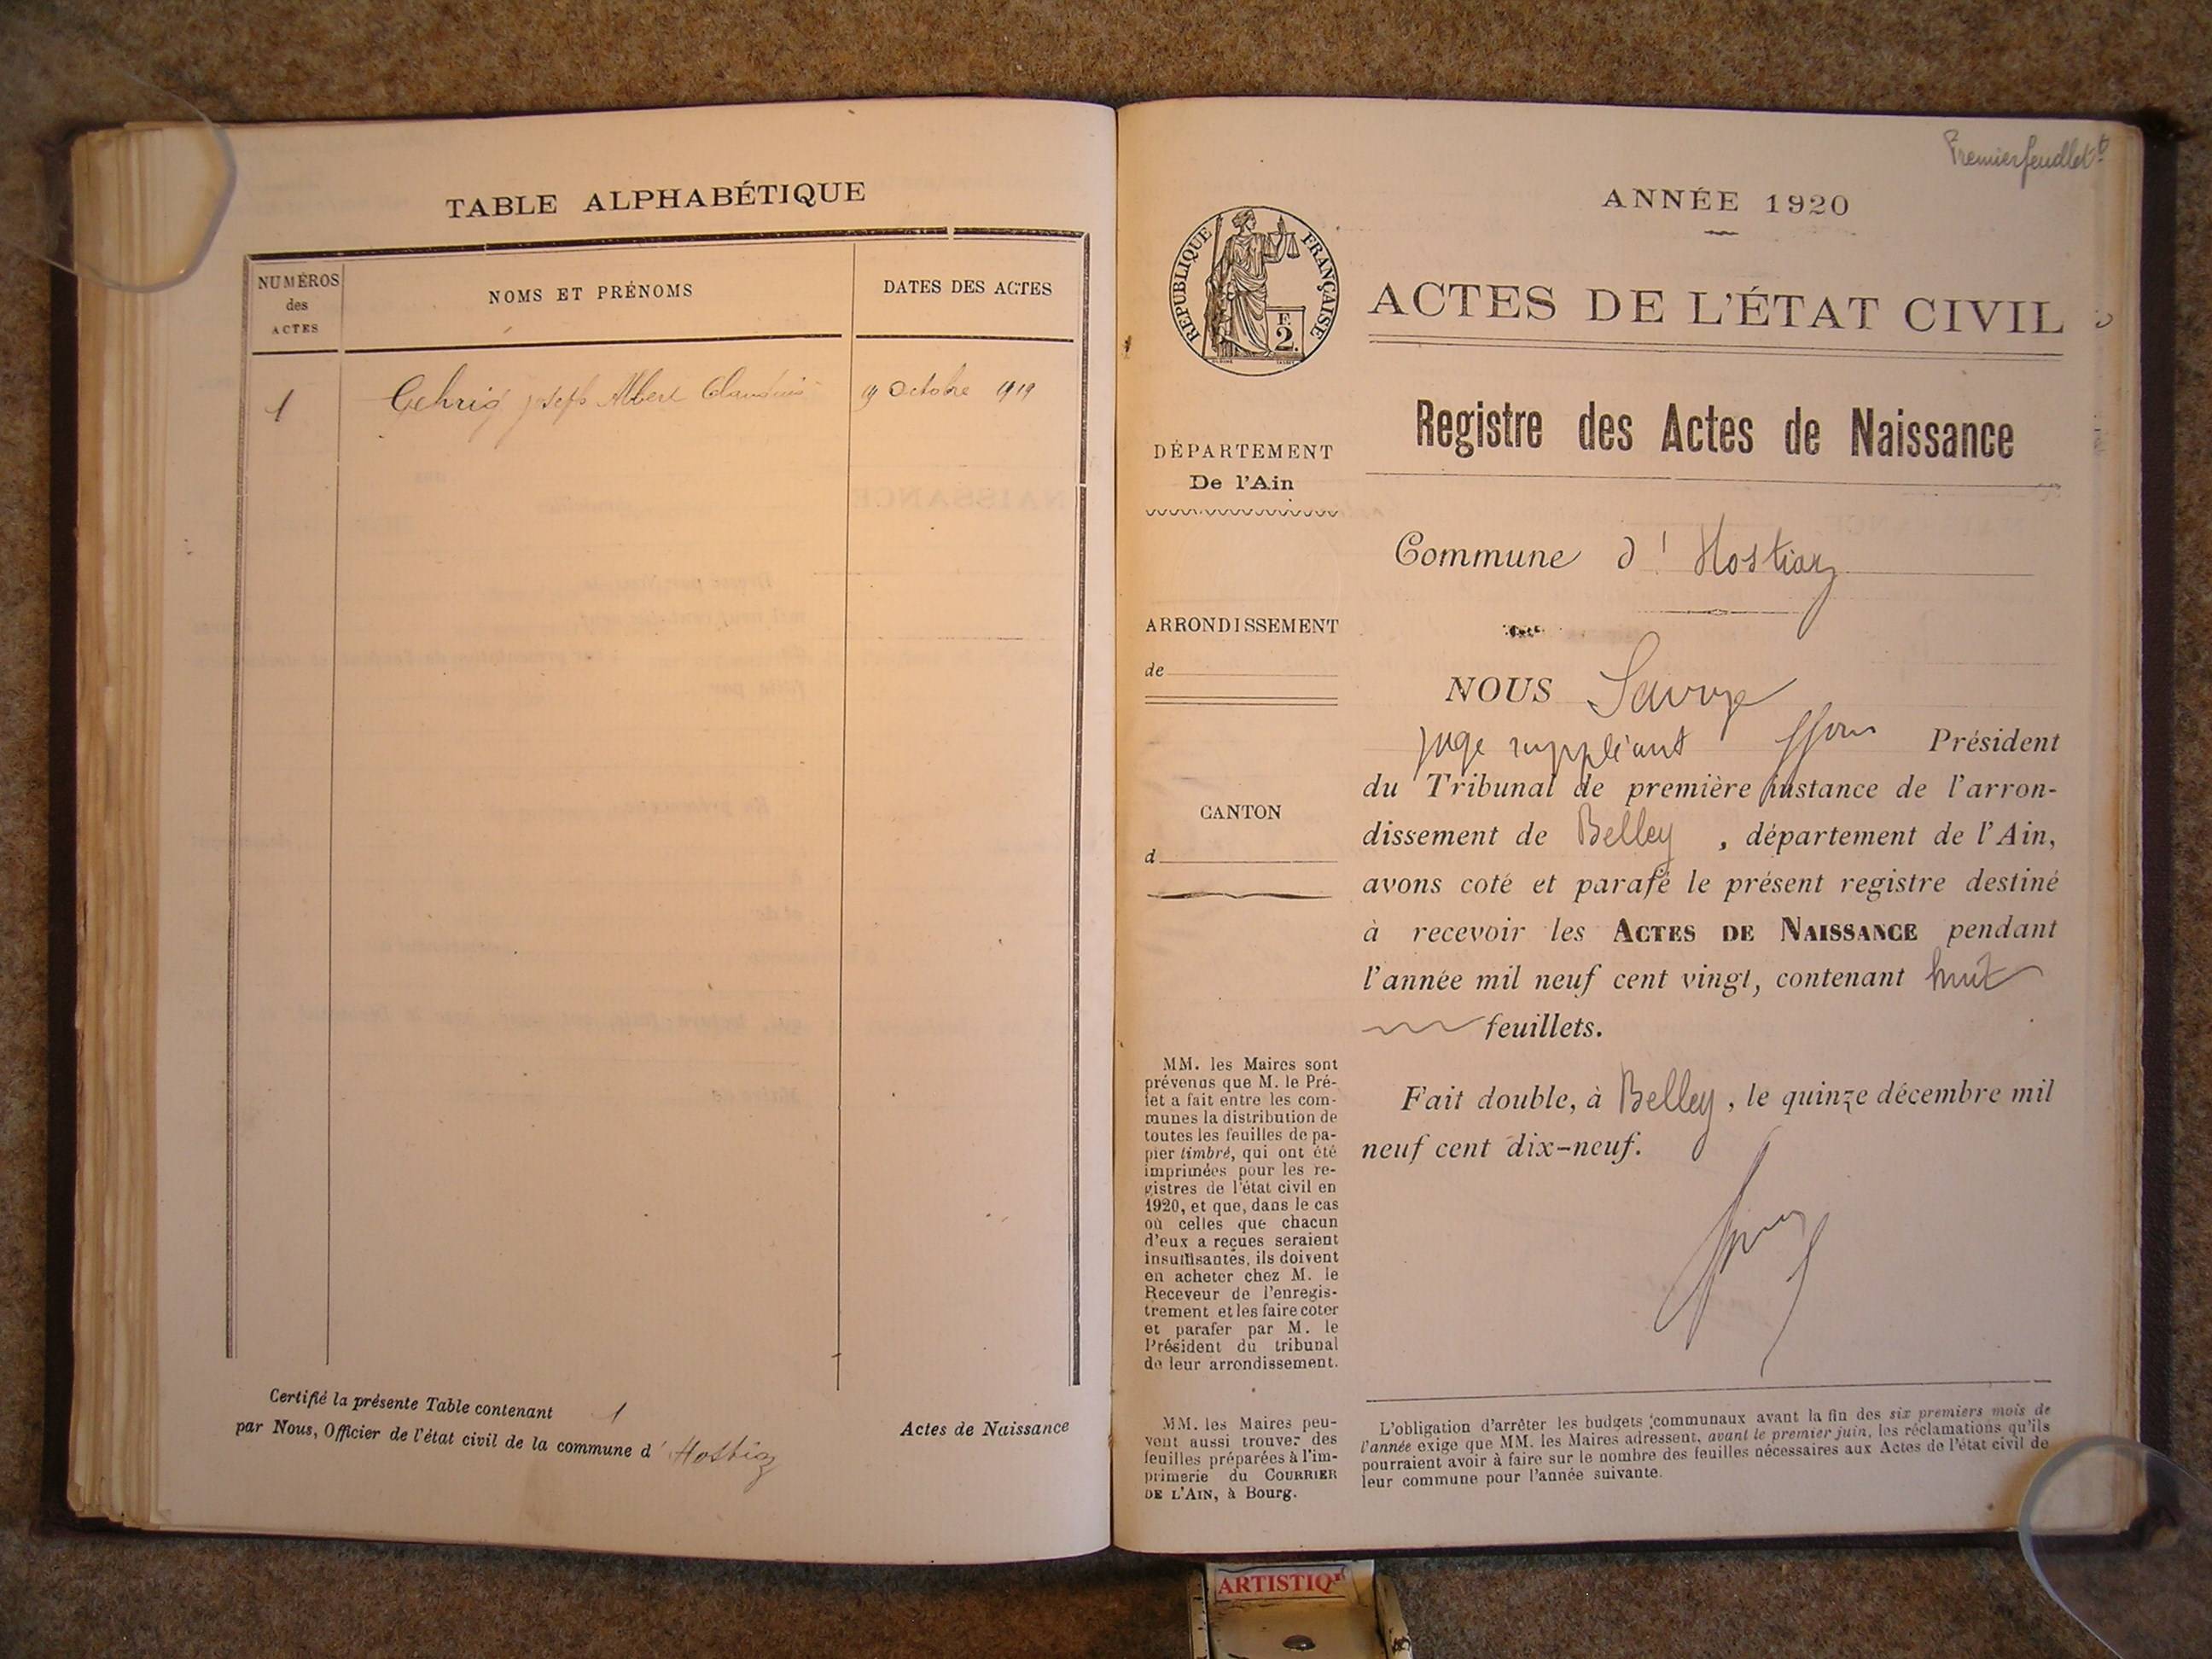 TABLE ALPHABÉTIQUE
NUMÉROS
des
ACTES
NOMS ET PRÉNOMS
DATES DES ACTES
1 Gehrig Joseph Albert Claudius 19 Octobre 1919
Certifié la présente Table contenant 1 Actes de Naissance
par Nous, Officier de l'état civil de la commune d' Hostiaz
Premier feuillet
ANNÉE 1920
RÉPUBLIQUE FRANÇAISE
F.
2.
ACTES DE L'ÉTAT CIVIL
Registre des Actes de Naissance
DÉPARTEMENT
De l'Ain
ARRONDISSEMENT
de
CANTON
d
MM. les Maires sont
prévenus que M. le Pré-
fet a fait entre les com-
munes la distribution de
toutes les feuilles de pa-
pier timbré, qui ont été
imprimées pour les re-
gistres de l'état civil en
1920, et que, dans le cas
où celles que chacun
d'eux a reçues seraient
insuffisantes, ils doivent
en acheter chez M. le
Receveur de l'enregis-
trement et les faire coter
et parafer par M. le
Président du tribunal
de leur arrondissement.
MM. les Maires peu-
vent aussi trouver des
feuilles préparées à l'im-
primerie du COURRIER
DE L'AIN, à Bourg.
Commune d' Hostiaz
NOUS
juge suppléant ffons Président
du Tribunal de première instance de l'arron-
dissement de Belley, département de l'Ain,
avons coté et parafé le présent registre destiné
à recevoir les ACTES DE NAISSANCE pendant
l'année mil neuf cent vingt, contenant huit
feuillets.
Fait double, à Belley, le quinze décembre mil
neuf cent dix-neuf.
L'obligation d'arrêter les budgets communaux avant la fin des six premiers mois de
l'année exige que MM. les Maires adressent, avant le premier juin, les réclamations qu'ils
pourraient avoir à faire sur le nombre des feuilles nécessaires aux Actes de l'état civil de
leur commune pour l'année suivante.
ARTISTIQ